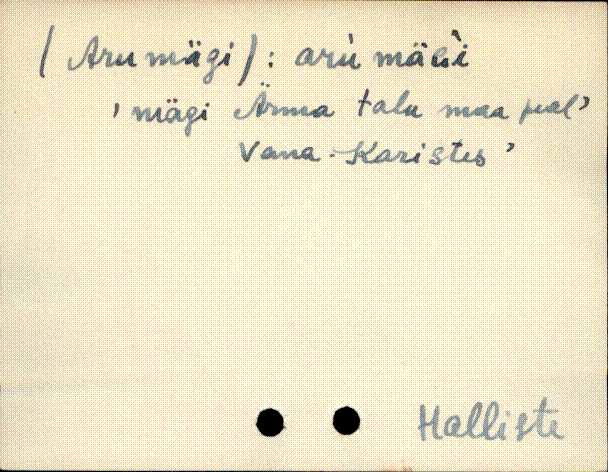 (Aru mägi): arù mäGì
'mägi Ärma talu maa peal'
Vana-Karistes'
Halliste